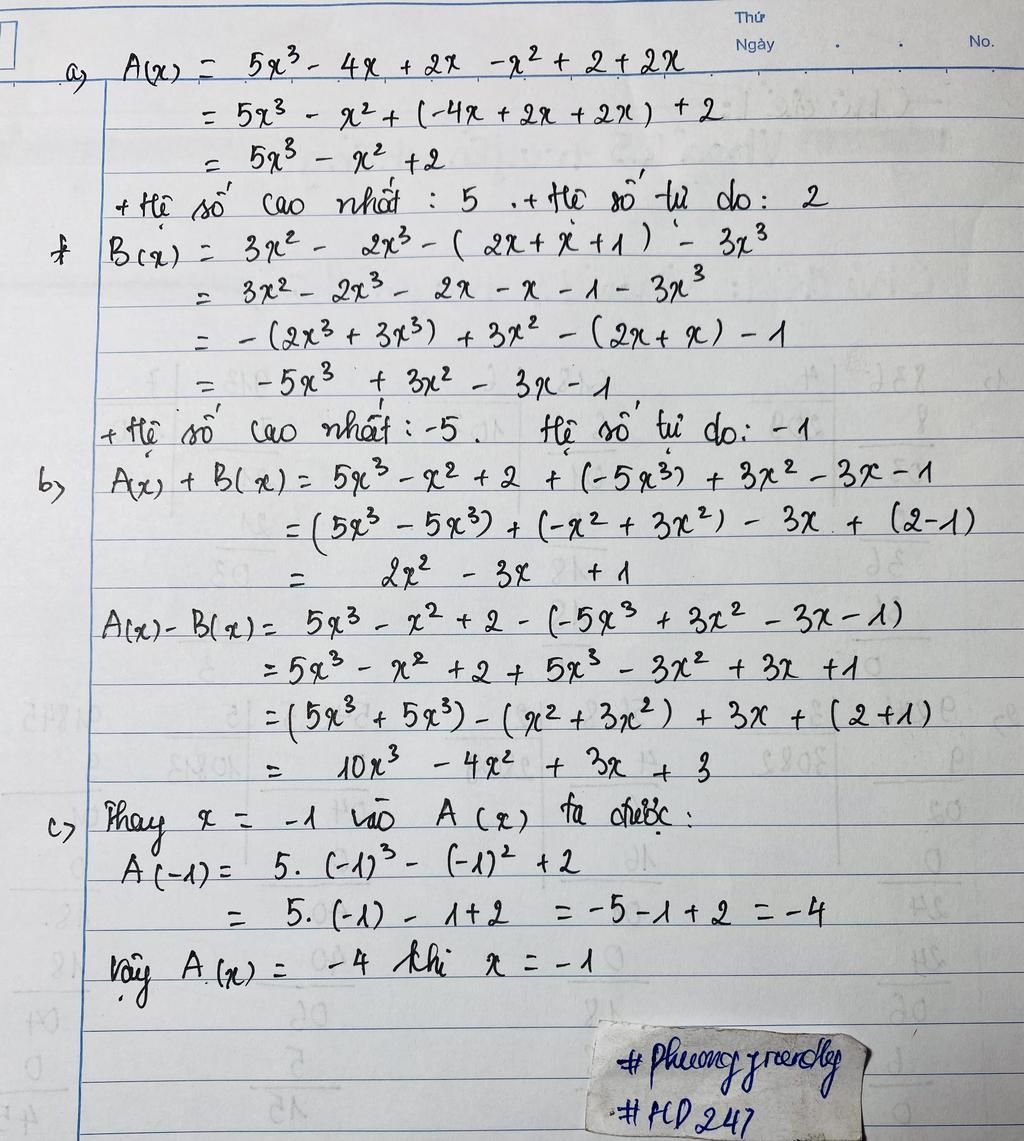 Thứ
Ngày . . No.
a, A(x) = 5x³ - 4x + 2x - x² + 2 + 2x
= 5x³ - x² + (-4x + 2x + 2x) + 2
= 5x³ - x² + 2
+ Hệ số cao nhất : 5 . + Hệ số tự do : 2
* B(x) = 3x² - 2x³ - (2x + x + 1) - 3x³
= 3x² - 2x³ - 2x - x - 1 - 3x³
= -(2x³ + 3x³) + 3x² - (2x + x) - 1
= -5x³ + 3x² - 3x - 1
+ Hệ số cao nhất : -5 . Hệ số tự do : -1
b, A(x) + B(x) = 5x³ - x² + 2 + (-5x³) + 3x² - 3x - 1
= (5x³ - 5x³) + (-x² + 3x²) - 3x + (2-1)
= 2x² - 3x + 1
A(x) - B(x) = 5x³ - x² + 2 - (-5x³ + 3x² - 3x - 1)
= 5x³ - x² + 2 + 5x³ - 3x² + 3x + 1
= (5x³ + 5x³) - (x² + 3x²) + 3x + (2+1)
= 10x³ - 4x² + 3x + 3
c, Thay x = -1 vào A(x) ta được :
A(-1) = 5. (-1)³ - (-1)² + 2
= 5. (-1) - 1 + 2 = -5 - 1 + 2 = -4
Vậy A(x) = -4 khi x = -1
#HD247